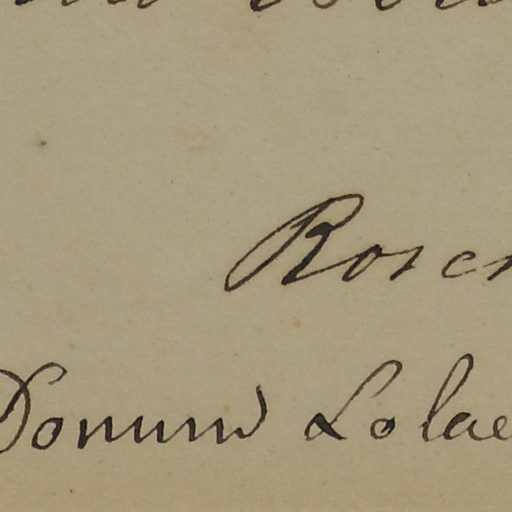 Rosen
Donum Lolae